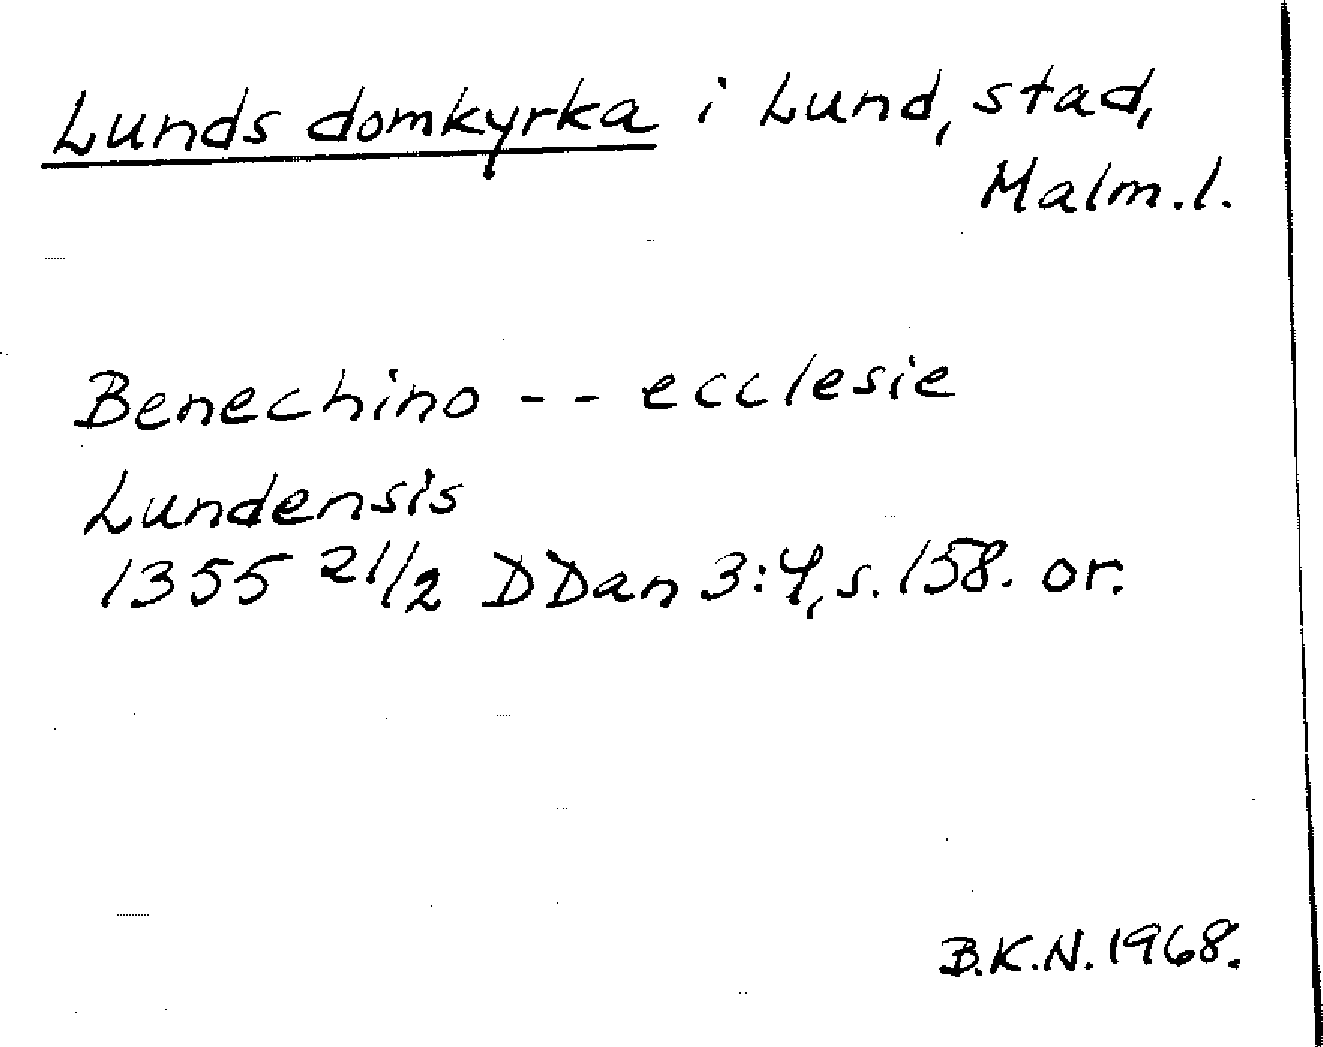 Lunds domkyrka i Lund, stad,
Malm.l.
Benechino -- ecclesie
Lundensis
1355 21/2 DDan 3:4, s. 158. or.
B.K.N. 1968.